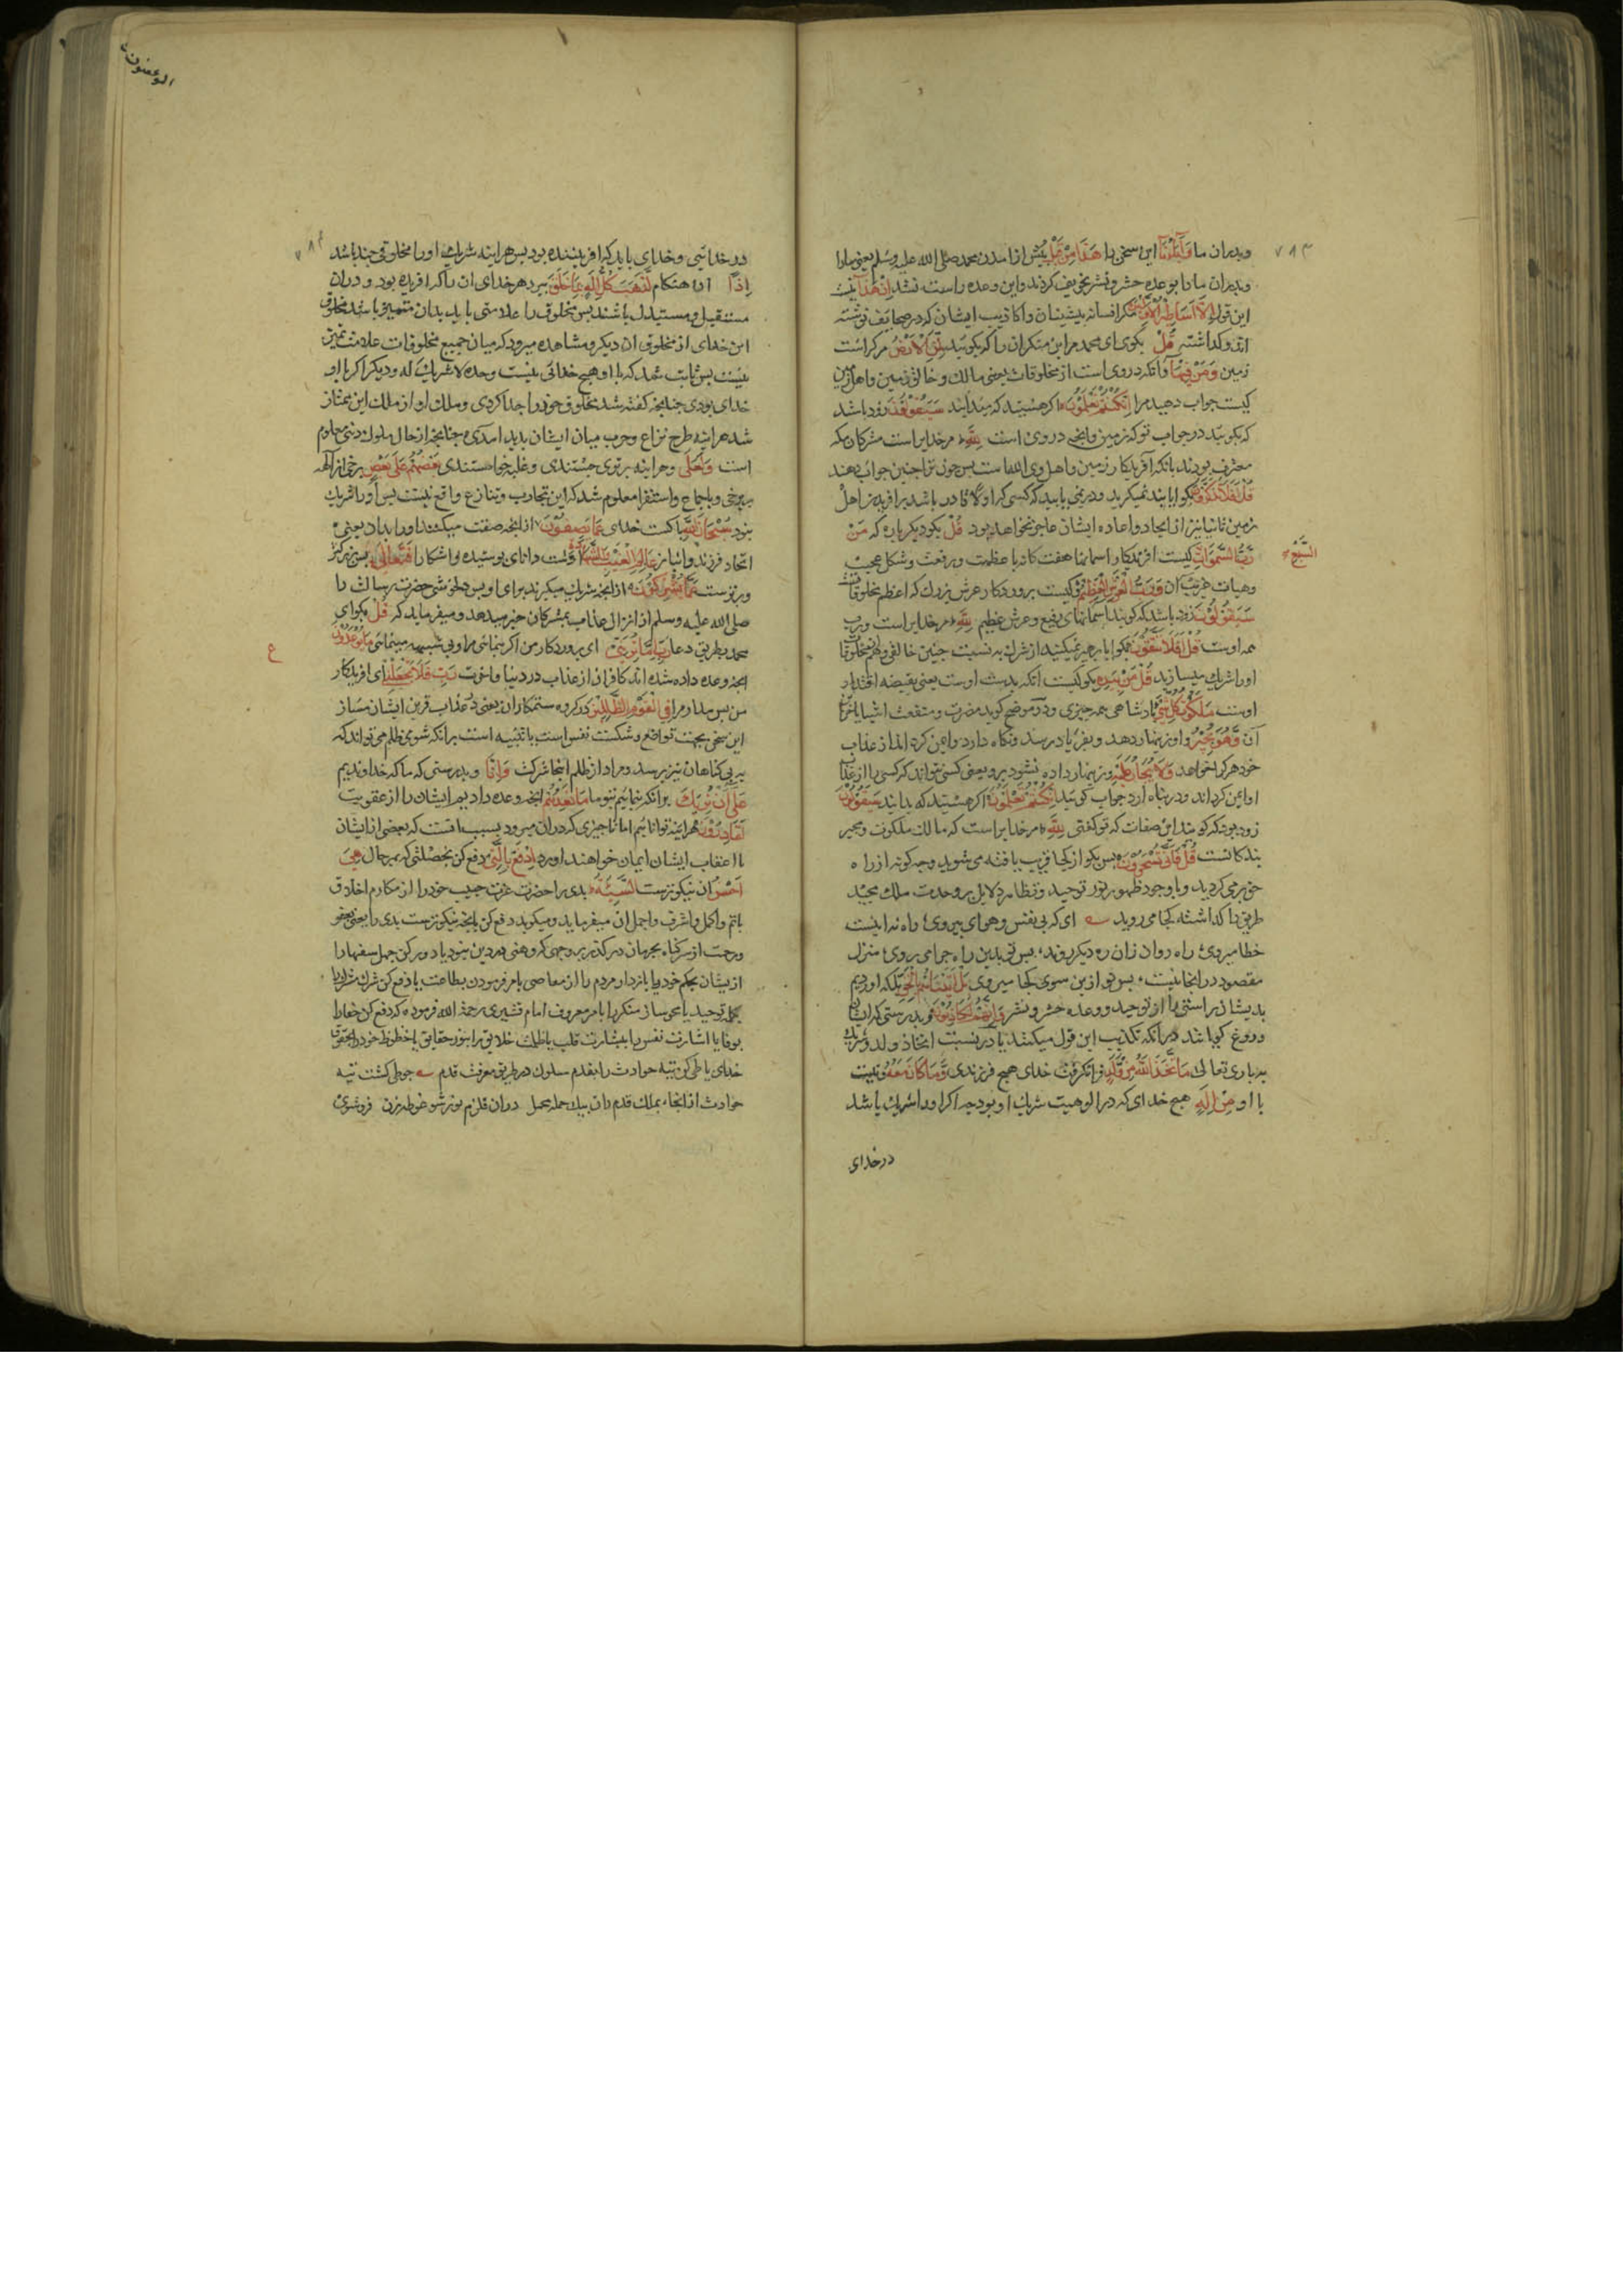 ۷۸۳
وپدران ما وَآبَاؤُنَا این سخن را هَذَا مِنْ قَبْلُ پیش از آمدن محمد صلی الله علیه وسلم یعنی مارا
وپدران مارا بوعده حشر ونشر تخویف کردند واین وعده راست نشد اِنْ هَذَا نیست
این قول اِلَّا اَسَاطِیرُ الْاَوَّلِینَ مگر افسانه پیشینیان واکاذیب ایشان که در صحایف نوشته
اند وگذاشته قُلْ بگوی ای محمد مر این منکران را که بگویید لِمَنِ الْاَرْضُ مر کراست
زمین وَمَنْ فِیهَا وانکه در وی است از مخلوقات یعنی مالک وخالق زمین واهل زمین
کیست جواب دهید مرا اِنْ کُنْتُمْ تَعْلَمُونَ اکر هستید که میدانید سَیَقُولُونَ زود باشد
که بگویند در جواب تو که زمین وانچه در وی است لِلَّهِ مر خدایراست مشرکان مکه
معترف بودند بانکه آفریدکار زمین واهل وی الله است پس چون ترا چنین جواب دهند
قُلْ اَفَلَا تَذَکَّرُونَ بگو ایا پند نمیگیرید ودر نمی یابید که کسی که او اولا قادر باشد بر افریدن اهل
زمین ثانیا نیز از ایجاد واعاده ایشان عاجز نخواهد بود قُلْ بگو دیگر باره که مَنْ
رَبُّ السَّمَوَاتِ کیست افریدکار اسمانها هفت کانه با عظمت ورفعت وشکل عجیب
السَّبْعِ
وهیات غریب ان وَرَبُّ الْعَرْشِ الْعَظِیمِ وکیست پروردکار عرش بزرک که اعظم مخلوقاتست
سَیَقُولُونَ زود باشد که گویند اسمانهای رفیع وعرش عظیم لِلَّهِ مر خدایراست ورب
همه اوست قُلْ اَفَلَا تَتَّقُونَ بگو ایا پرهیز نمیکنید از شرک به نسبت چنین خالقی
اورا شریک میسازید قُلْ مَنْ بِیَدِهِ بگو کیست آنکه بدست اوست یعنی بقبضه اقتدار
اوست مَلَکُوتُ کُلِّ شَیْءٍ پادشاهی همه چیزی ودر موضح گوید مضرت ومنفعت اشیا
آن وَهُوَ یُجِیرُ واو زینهار دهد وبفریاد رسد ونگاه دارد وایمن کرداند از عذاب
خود هر که را خواهد وَلَا یُجَارُ عَلَیْهِ وزینهار داده نشود برو یعنی کسی نتواند که کسی را از عذاب
او ایمن کرداند ودر پناه آرد جواب گویید اِنْ کُنْتُمْ تَعْلَمُونَ اکر هستید که بدانید سَیَقُولُونَ
زود بود که گویند این صفات که تو گفتی لِلَّهِ مر خدایراست که مالک ملکوت ومجیر
بندکانست قُلْ فَاَنَّی تُسْحَرُونَ پس بگو از کجا فریب یافته می شوید وچگونه از راه
حق بر می گردید وبا وجود ظهور نور توحید وتظاهر دلایل بر وحدت ملک مجید
طریق را کذاشته کجا می روید ای که بی نفس وهوای می روی راه نه اینست
خطا میروی راه روان زان ره دیگر روند پس تو بدین راه چرا می روی منزل
مقصود در انجا نیست پس تو ازین سوی کجا میروی بَلْ اَتَیْنَاهُمْ بِالْحَقِّ بلکه اوردیم
بدیشان راستی را از توحید ووعده حشر ونشر وَاِنَّهُمْ لَکَاذِبُونَ وبدرستی که ایشان
دروغ گویانند در آنکه تکذیب این قول میکنند یا در نسبت اتخاذ ولد وشریک
به باری تعالی مَا اتَّخَذَ اللَّهُ مِنْ وَلَدٍ فرا نگرفت خدای هیچ فرزندی وَمَا کَانَ مَعَهُ ونیست
با او مِنْ اِلَهٍ هیچ خدای که در الوهیت شریک او بود چه اکر اورا شریک باشد
در خدای
المؤمنون
۷۸۴
در خدائی وخدای باید که افریننده بود پس هر اینه شریک اورا مخلوقی چند باشد
اِذًا ان هنکام لَذَهَبَ کُلُّ اِلَهٍ بِمَا خَلَقَ ببرد هر خدای ان را که افریده بود ودران
مستقبل ومستبدل باشند پس مخلوق را علامتی باید بدان متمیز باشد مخلوق
این خدای از مخلوق ان دیگر ومشاهده میرود که میان جمیع مخلوقات علامت تمیز
نیست پس ثابت شد که با او هیچ خدائی نیست وحده لا شریک له ودیگر اکر با او
خدای بودی چنانچه گفته شد مخلوق خودرا جدا کردی وملک او از ملک این ممتاز
شد هر اینه طرح نزاع وحرب میان ایشان پدید آمدی چنانچه از حال ملوک دنیی معلوم
است وَلَعَلَی وهر اینه برتری جستندی وغلبه خواستندی بَعْضُهُمْ عَلَی بَعْضٍ برخی از آلهه
بر برخی وباجماع واستقرا معلوم شد که این تجارب وتنازع واقع نیست پس اورا شریک
نبود سُبْحَانَ اللَّهِ پاکست خدای عَمَّا یَصِفُونَ از انچه صفت میکنند اورا بدان یعنی
اتخاذ فرزند وانباز عَالِمِ الْغَیْبِ وَالشَّهَادَةِ اوست دانای پوشیده واشکارا فَتَعَالَی پس بزرکتر
وبرترست عَمَّا یُشْرِکُونَ از انچه شریک میگیرند برای او پس دلخوشی حضرت رسالت را
صلی الله علیه وسلم از انزال عذاب بمشرکان خبر میدهد ومیفرماید که قُلْ بگو ای
محمد بطریق دعا رَبِّ اِمَّا تُرِیَنِّی ای پروردکار من اکر بنمائی مرا وبی شبهه مینمائی مَا یُوعَدُونَ
ع
انچه وعده داده شده اند کافران از عذاب در دنیا واخرت رَبِّ فَلَا تَجْعَلْنِی ای افریدکار
من پس مدار مرا فِی الْقَوْمِ الظَّالِمِینَ در کروه ستمکاران یعنی در عذاب قرین ایشان مساز
این سخن بجهت تواضع وشکست نفس است یا تنبیه است بر انکه شومی ظلم می تواند که
بر بی کناهان نیز برسد ومراد از ظلم اینجا شرکست وَاِنَّا وبدرستی که ما که خداوندیم
عَلَی اَنْ نُرِیَکَ بر انکه بنمائیم بتو ما مَا نَعِدُهُمْ انچه وعده دادیم ایشان را از عقوبت
لَقَادِرُونَ هر اینه تواناییم اما تاخیری که دران میرود بسبب انست که بعضی از ایشان
یا اعقاب ایشان ایمان خواهند اورد اِدْفَعْ بِالَّتِی دفع کن بخصلتی که بهر حال هِیَ
اَحْسَنُ ان نیکوترست السَّیِّئَةَ بدی را حضرت عزت حبیب خودرا از مکارم اخلاق
باتم واکمل واشرف واجمل ان میفرماید ومیگوید دفع کن بانچه نیکوترست بدی را یعنی بعفو
ورحمت از سر کناه مجرمان در کذر بر وجهی که وهنی در دین نبود یا دور کن جهل سفها را
از ایشان بحکم خود ویا بازدار مردم را از معاصی بامر فرمودن بطاعت یا دفع کن شرک مشرکان را
بکلمه توحید یا محو ساز منکر را بامر معروف امام قشیری رحمة الله فرموده که دفع کن جفارا
بوفا یا اشارت نفس را ببشارت قلب یا ظلمات خلایق را بنور حقایق یا حظوظ خود را بحقوق
خدای یا طی کن تیه حوادث را بقدم سلوک در طریق معرفت قدم چو طی کشت تیه
حوادث از انجا بملک قدم ران بیک حمله محمل دران قلزم نور شو غوطه زن فرو شوی